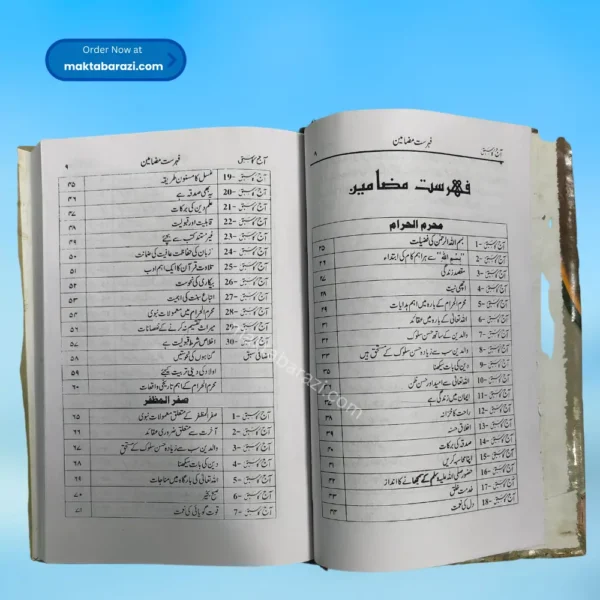 Order Now at
maktabarazi.com
آج کا سبق فہرست مضامین ۸
فہرست مضامین
محرم الحرام
آج کا سبق -1 بسم اللہ الرحمٰن کی فضیلت ۲۵
آج کا سبق -2 "بسم اللہ" سے ہر اہم کام کی ابتداء ۲۶
آج کا سبق -3 مقصد زندگی
آج کا سبق -4 اچھی نیت
آج کا سبق -5 محرم الحرام کے بارہ میں اہم ہدایات
آج کا سبق -6 اللہ تعالیٰ کے بارہ میں عقائد
آج کا سبق -7 والدین کے ساتھ حسن سلوک
آج کا سبق -8 والدین سب سے زیادہ حسن سلوک کے مستحق ہیں
آج کا سبق -9 دین کی بات سیکھنا
آج کا سبق -10 اللہ تعالیٰ سے امید اور حسن ظن
آج کا سبق -11 ایمان میں زندگی ہے
آج کا سبق -12 راحت کا خزانہ
آج کا سبق -13 اخلاق حسنہ
آج کا سبق -14 صدقہ کی برکت
آج کا سبق -15 اپنا محاسبہ کریں
آج کا سبق -16 حضور صلی اللہ علیہ وسلم کے سمجھانے کا انداز
آج کا سبق -17 خدمت خلق
آج کا سبق -18 دل کی قوت
آج کا سبق فہرست مضامین ۹
آج کا سبق -19 غسل کا مسنون طریقہ ۴۵
آج کا سبق -20 یہ بھی صدقہ ہے ۴۶
آج کا سبق -21 علم دین کی برکات ۴۷
آج کا سبق -22 قابلیت اور قبولیت ۴۸
آج کا سبق -23 غیر مستند کتب سے بچئے ۴۹
آج کا سبق -24 زبان کی حفاظت عافیت کی ضمانت ۵۰
آج کا سبق -25 تلاوت قرآن کا ایک اہم ادب ۵۱
آج کا سبق -26 بیکاری کی نحوست ۵۲
آج کا سبق -27 اتباع سنت کی اہمیت ۵۳
آج کا سبق -28 محرم الحرام میں معمولات نبوی ۵۴
آج کا سبق -29 میراث تقسیم نہ کرنے کے نقصانات ۵۶
آج کا سبق -30 اخلاص شرط قبولیت ہے ۵۷
مثالی سبق گناہوں کی نحوستیں ۵۸
اولاد کی دینی تربیت کیجئے ۵۹
محرم الحرام کے اہم تاریخی واقعات ۶۰
صفر المظفر
آج کا سبق -1 صفر المظفر کے متعلق معمولات نبوی ۶۵
آج کا سبق -2 آخرت سے متعلق ضروری عقائد ۶۶
آج کا سبق -3 والدین سب سے زیادہ حسن سلوک کے مستحق ۶۷
آج کا سبق -4 دین کی بات سیکھنا ۶۸
آج کا سبق -5 اللہ تعالیٰ کی بارگاہ میں مناجات ۶۹
آج کا سبق -6 صبح بخیر ۷۰
آج کا سبق -7 قوت گویائی کی نعمت ۷۱
maktabarazi.com